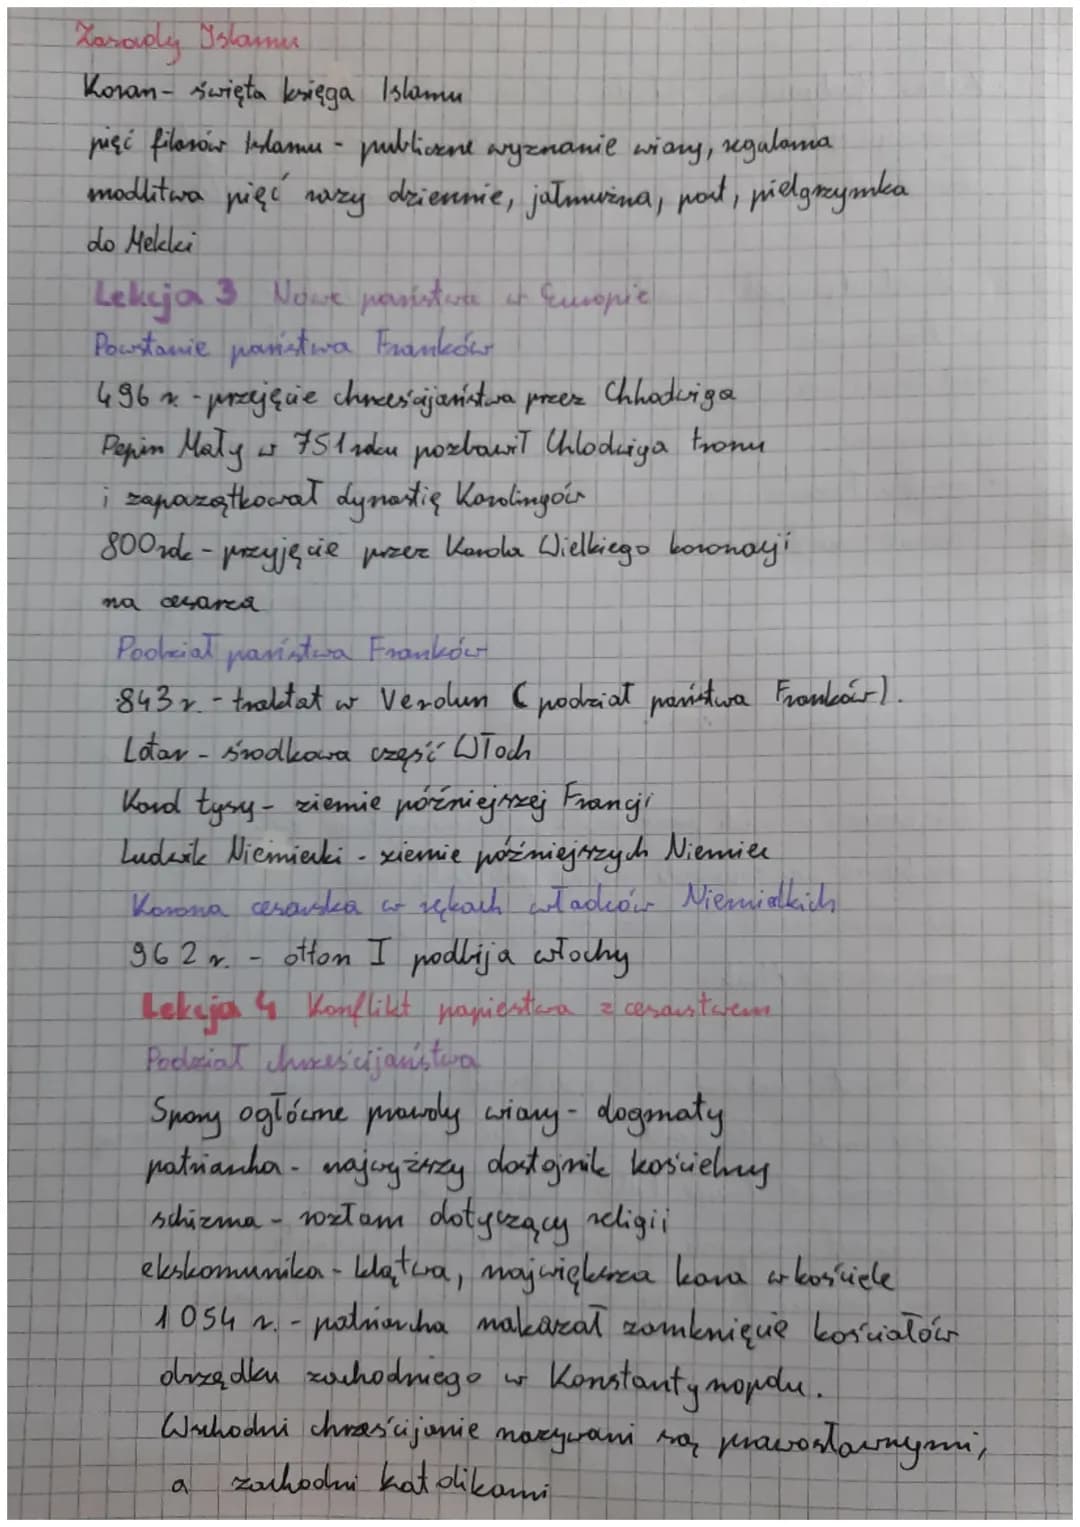 Zasady Islamu
Koran - święta księga Islamu
pięć filarów Islamu - publiczne wyznanie wiary, regularna
modlitwa pięć razy dziennie, jałmużna, post, pielgrzymka
do Mekki
Lekcja 3 Nowe państwa w Europie
Powstanie państwa Franków
496 r. - przejęcie chrześcijaństwa przez Chlodwiga
Pepin Mały w 751 roku pozbawił Chlodwiga tronu
i zapoczątkował dynastię Karolingów
800 rok - przyjęcie przez Karola Wielkiego koronacji
na cesarza
Podział państwa Franków
843 r. - traktat w Verdun (podział państwa Franków).
Lotar - środkowa część Włoch
Karol łysy - ziemie późniejszej Francji
Ludwik Niemiecki - ziemie późniejszych Niemiec
Korona cesarska w rękach władców Niemieckich
962 r. - otton I podbija włochy
Lekcja 4 Konflikt papiestwa z cesarstwem
Podział chrześcijaństwa
Spory ogłówne prawdy wiary - dogmaty
patriarcha - najwyższy dostojnik kościelny
schizma - rozłam dotyczący religii
ekskomunika - klątwa, największa kara w kościele
1054 r. - patriarcha nakazał zamknięcie kościołów
obrządku zachodniego w Konstantynopolu.
Wschodni chrześcijanie nazywani są prawosławnymi,
a zachodni katolikami